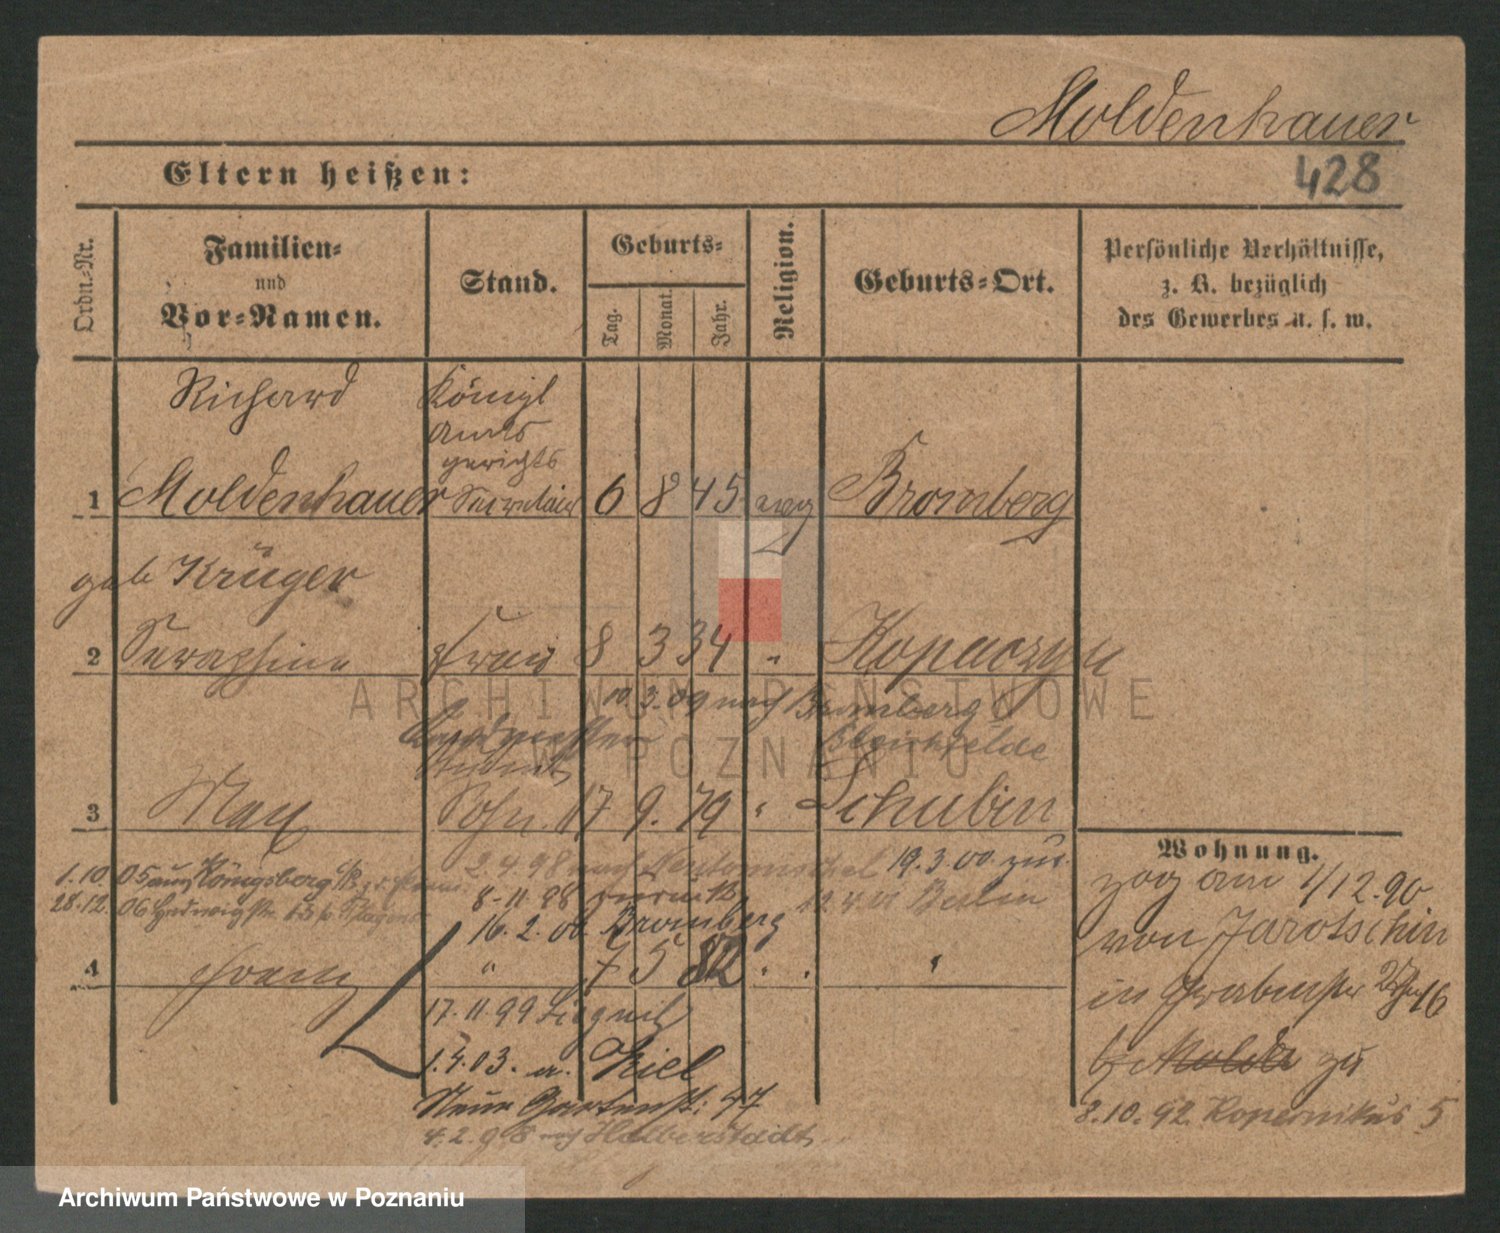 Moldenhauer
428
Eltern heißen:
Ordn.-Nr.
Familien-
und
Vor-Namen.
Stand.
Geburts-
Tag.
Monat.
Jahr.
Religion.
Geburts-Ort.
Persönliche Verhältnisse,
z. B. bezüglich
des Gewerbes u. s. w.
Richard
Königl
Amts
gerichts
1 Moldenhauer Secretair 6 8 45 evg Bromberg
geb Krüger
2 Seraphine Frau 8 3 34 " Kopaczyn
10. 3. 09 nach Bromberg
Bleichfelde
3 Max Sohn 17 9. 79 " Schubin
Wohnung.
1.10. 05 aus Königsberg
2.4.98 nach Neutomischel 19.3.00. zur.
28.12. 06
8-11 98 zurück Berlin
16. 2. 00. Bromberg
4 Franz " 7 5 82 " "
17. 11. 99 Liegnitz
1. 4. 03. a. Kiel
Neue Gartenstr. 47
4. 2. 98 nach Halberstadt
zog am 1/12.90
von Jarotschin
in Grabenstr 16
b Molda zu
3. 10. 92. Kopernikus 5
ARCHIWUM PAŃSTWOWE
W POZNANIU
Archiwum Państwowe w Poznaniu